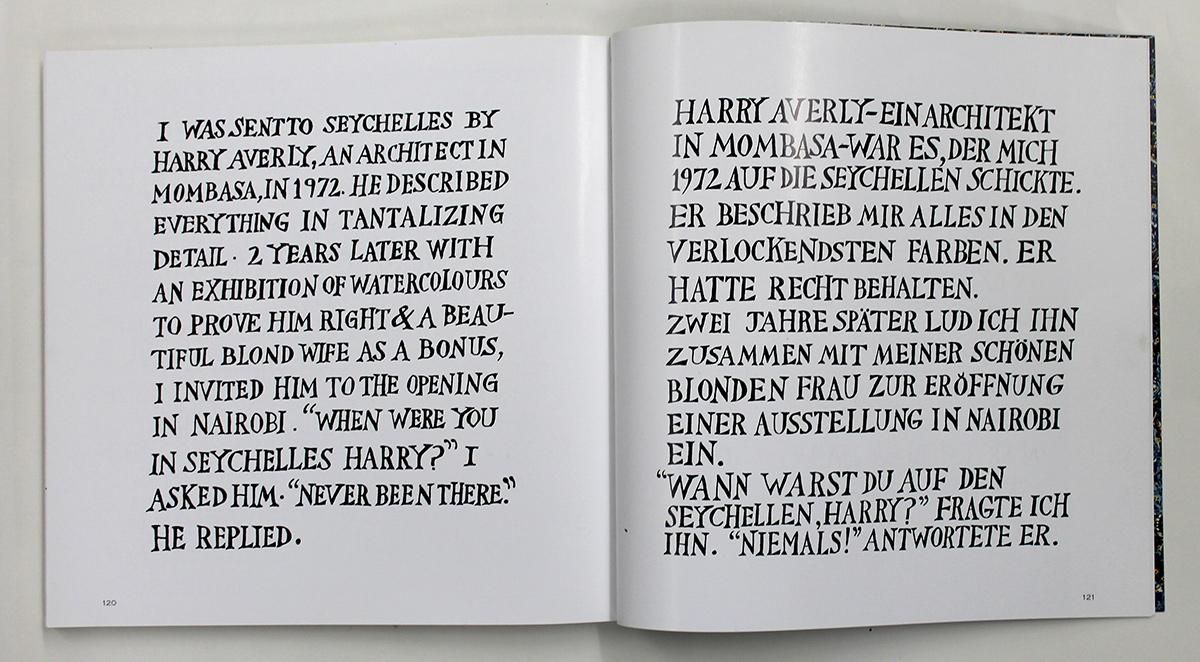 I WAS SENT TO SEYCHELLES BY
HARRY AVERLY, AN ARCHITECT IN
MOMBASA, IN 1972. HE DESCRIBED
EVERYTHING IN TANTALIZING
DETAIL. 2 YEARS LATER WITH
AN EXHIBITION OF WATERCOLOURS
TO PROVE HIM RIGHT & A BEAU-
TIFUL BLOND WIFE AS A BONUS,
I INVITED HIM TO THE OPENING
IN NAIROBI. “WHEN WERE YOU
IN SEYCHELLES HARRY?” I
ASKED HIM. “NEVER BEEN THERE.”
HE REPLIED.
120
HARRY AVERLY-EIN ARCHITEKT
IN MOMBASA-WAR ES, DER MICH
1972 AUF DIE SEYCHELLEN SCHICKTE.
ER BESCHRIEB MIR ALLES IN DEN
VERLOCKENDSTEN FARBEN. ER
HATTE RECHT BEHALTEN.
ZWEI JAHRE SPÄTER LUD ICH IHN
ZUSAMMEN MIT MEINER SCHÖNEN
BLONDEN FRAU ZUR ERÖFFNUNG
EINER AUSSTELLUNG IN NAIROBI
EIN.
“WANN WARST DU AUF DEN
SEYCHELLEN, HARRY?” FRAGTE ICH
IHN. “NIEMALS!” ANTWORTETE ER.
121